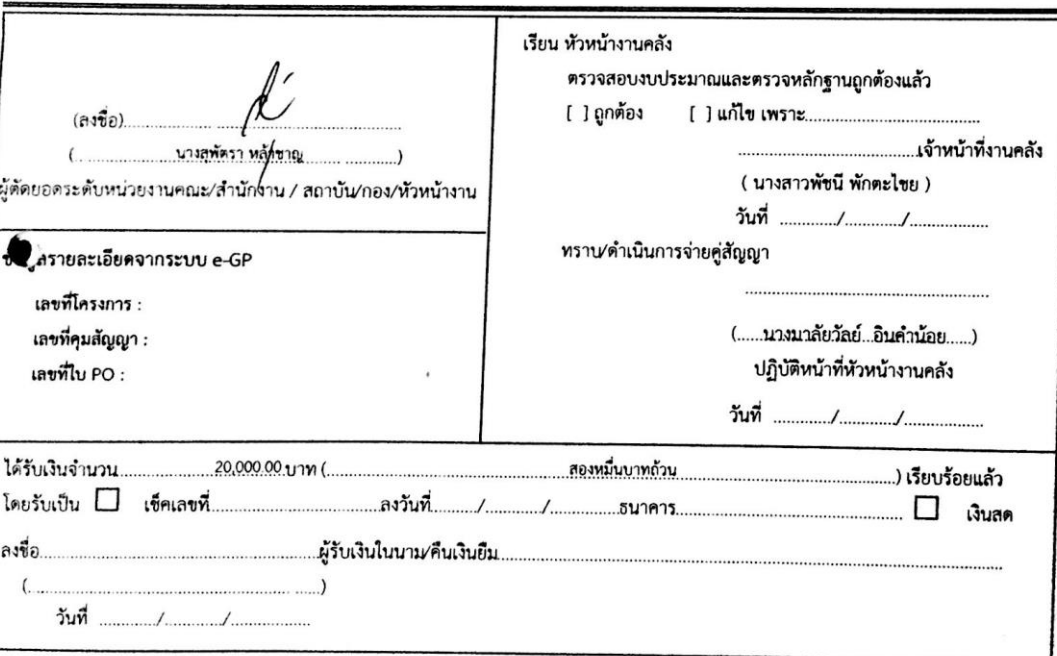 (ลงชื่อ)....................................................
(....................นางสุพัตรา หล้าชาญ....................)
ผู้ตัดยอดระดับหน่วยงานคณะ/สำนักงาน / สถาบัน/กอง/หัวหน้างาน
รายละเอียดจากระบบ e-GP
เลขที่โครงการ :
เลขที่คุมสัญญา :
เลขที่ใบ PO :
เรียน หัวหน้างานคลัง
ตรวจสอบงบประมาณและตรวจหลักฐานถูกต้องแล้ว
[ ] ถูกต้อง [ ] แก้ไข เพราะ........................................
........................................เจ้าหน้าที่งานคลัง
( นางสาวพัชนี พักตะไชย )
วันที่ ............/............/................
ทราบ/ดำเนินการจ่ายคู่สัญญา
........................................................
(......นางมาลัยวัลย์...อินคำน้อย......)
ปฏิบัติหน้าที่หัวหน้างานคลัง
วันที่ ............/............/................
ได้รับเงินจำนวน....................20,000.00.บาท (....................สองหมื่นบาทถ้วน....................) เรียบร้อยแล้ว
โดยรับเป็น ☐ เช็คเลขที่....................ลงวันที่........../............/..............ธนาคาร.................... ☐ เงินสด
ลงชื่อ........................................ผู้รับเงินในนาม/คืนเงินยืม........................................
(........................................)
วันที่ ............/............/................